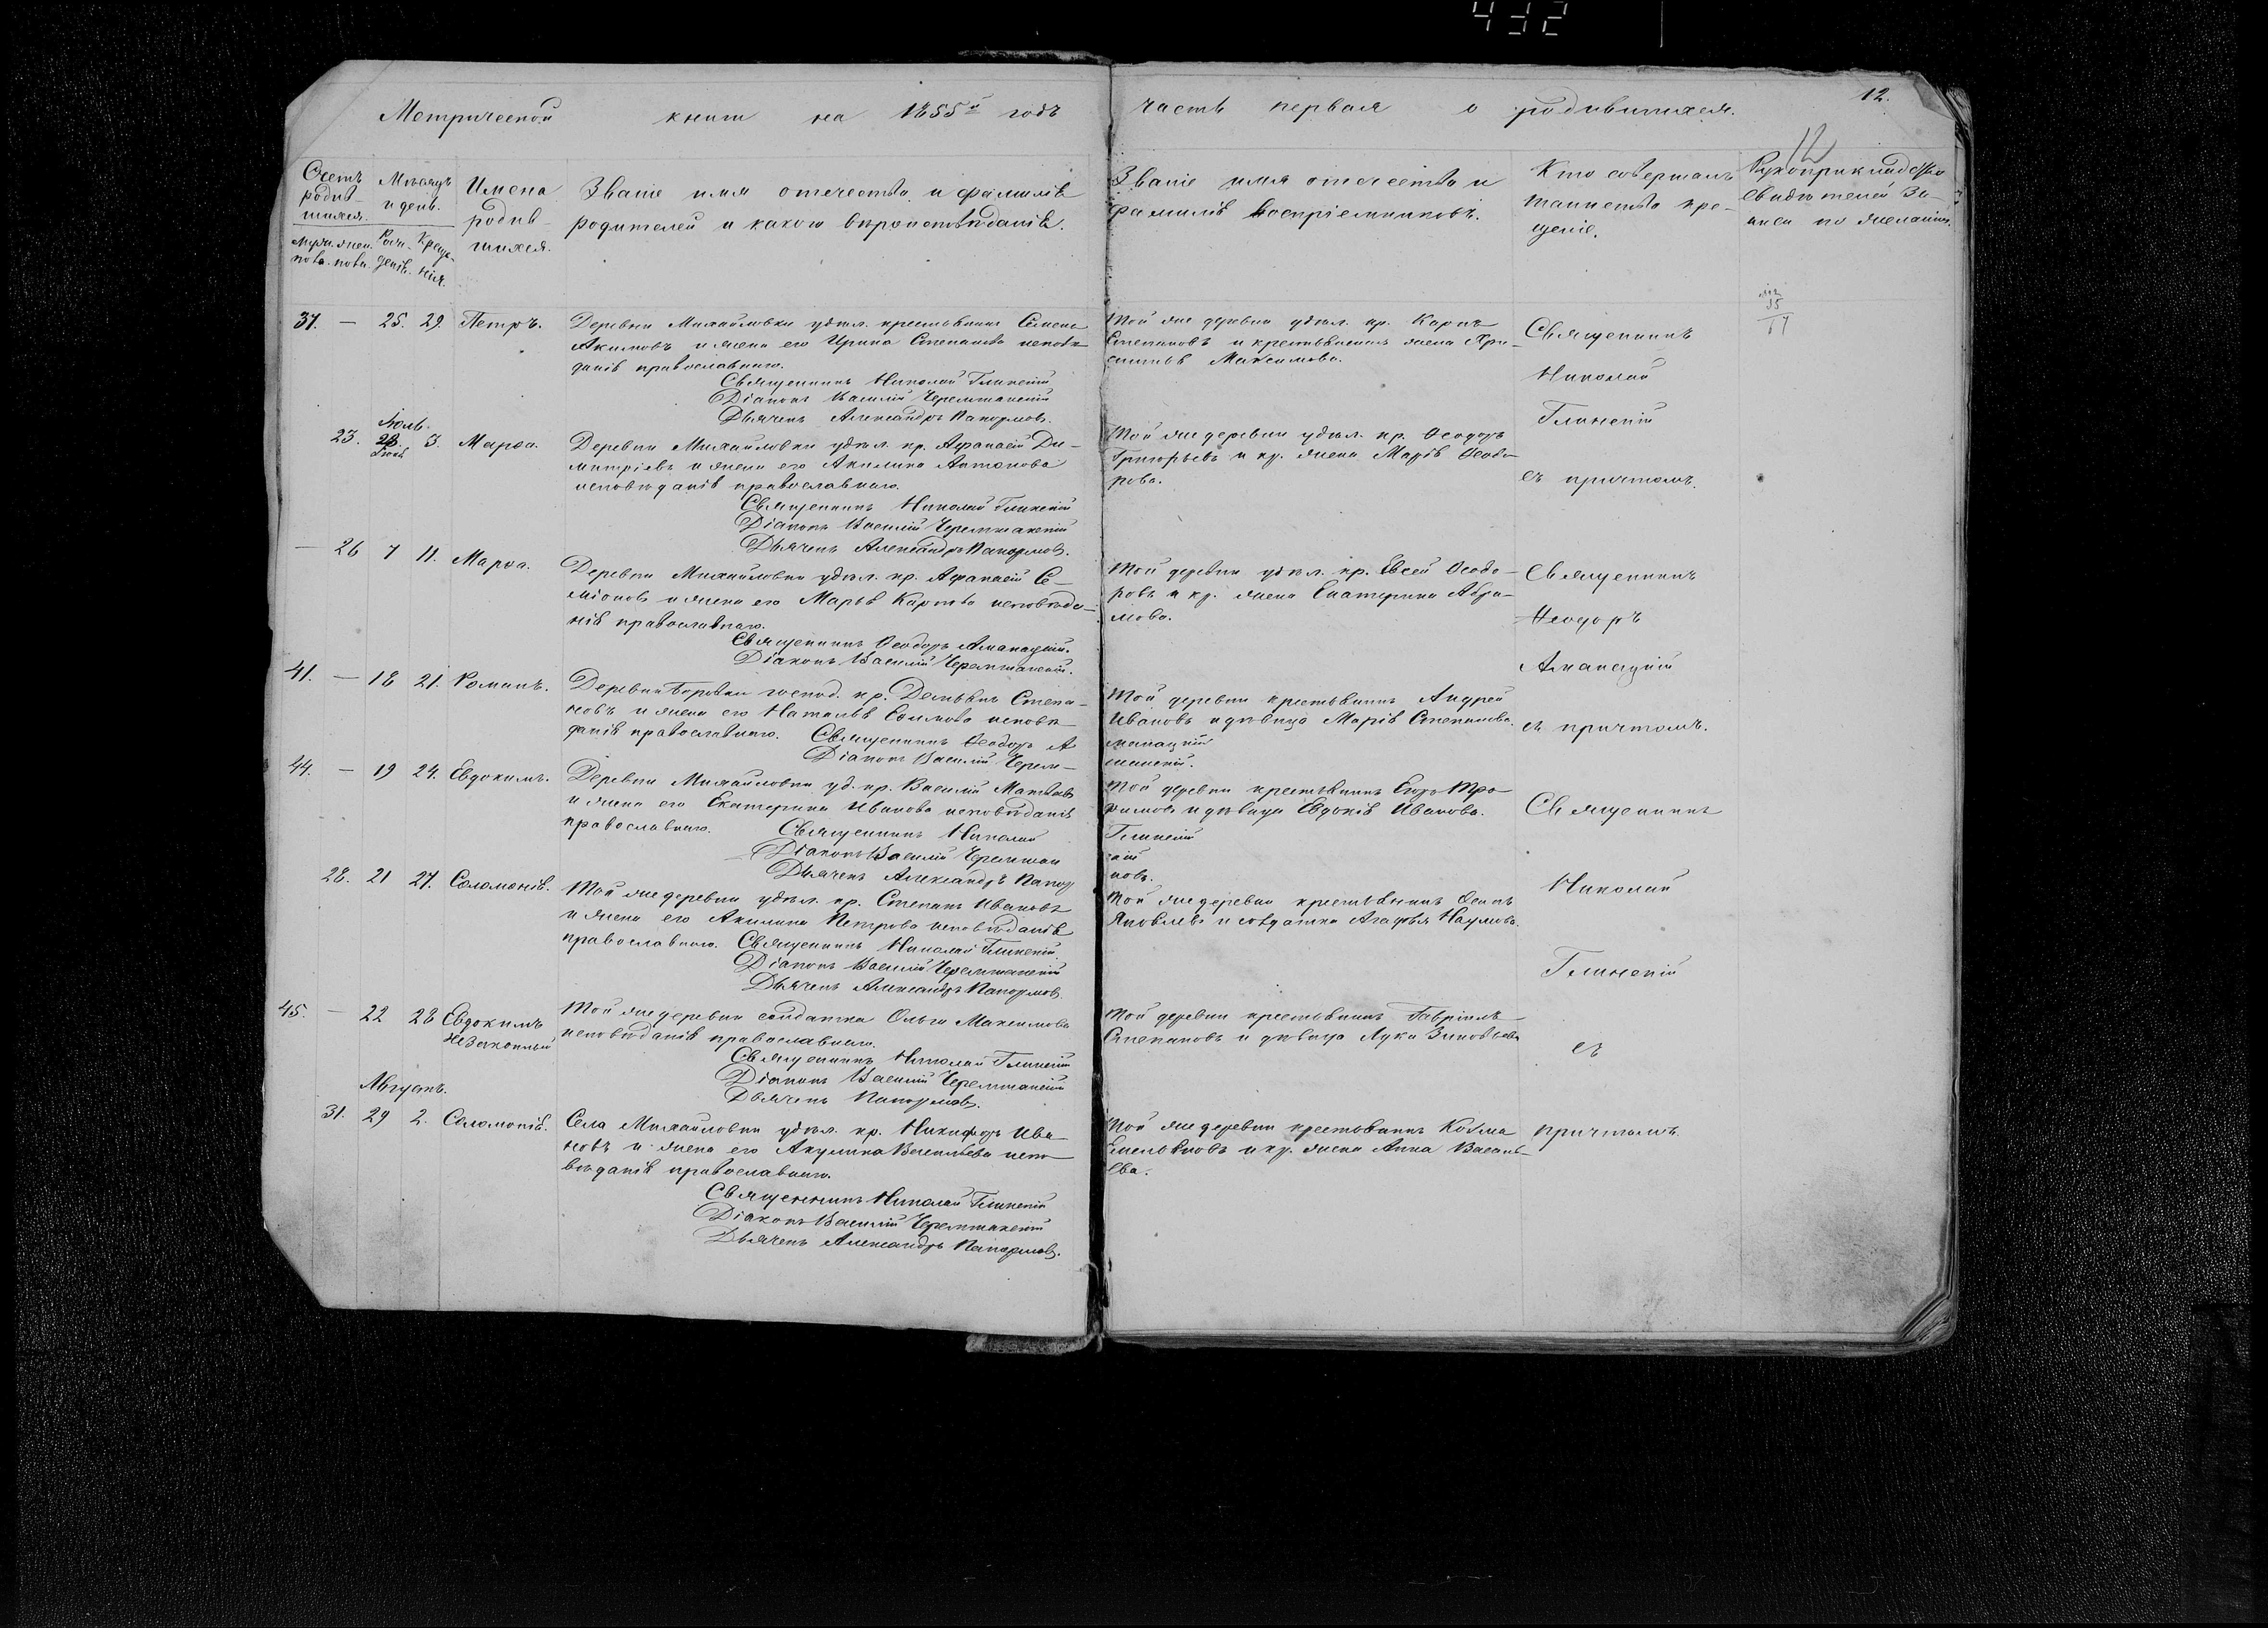 432
Метрической книги на 1855й годъ
часть первая о родившихся.
12.
12
Счетъ родив-шихся.
Мѣсяцъ и день.
Имена родив-шихся.
Званіе имя отечество и фамилія
родителей и какого вѣроисповѣданія.
Званіе имя отечество и
фамилія воспріемниковъ.
Кто совершалъ
таинство кре-
щенія.
Рукоприкладство
свидѣтелей за-
писи по желанію.
37. — 25. 29. Петръ.
Деревни Михайловки удѣл. крестьянинъ Семенъ
Акимовъ и жена его Ирина Степанова исповѣ-
данія православнаго.
Священникъ Николай Глинскій
Діаконъ Василій Черемшанскій
Дьячекъ Александръ Папормовъ.
Той же деревни удѣл. кр. Карпъ
Степановъ и крестьянская жена Хри-
стинья Максимова.
Священникъ
Николай
Глинскій
съ причтомъ.
Іюль.
23. 28. 3. Марѳа.
Іюня
Деревни Михайловки удѣл. кр. Афанасій Ди-
митріевъ и жена его Акилина Антонова
исповѣданія православнаго.
Священникъ Николай Глинскій
Діаконъ Василій Черемшанскій
Дьячекъ Александръ Папормовъ.
Той же деревни удѣл. кр. Ѳеодоръ
Григорьевъ и кр. жена Марія Ѳеодо-
рова.
— 26 7 11. Марѳа.
Деревни Михайловки удѣл. кр. Афанасій Се-
міоновъ и жена его Марья Карпова исповѣда-
нія православнаго.
Священникъ Ѳеодоръ Аманацкій.
Діаконъ Василій Черемшанскій.
Той деревни удѣл. кр. Евсей Ѳеодо-
ровъ и кр. жена Екатерина Абра-
мова.
Священникъ
Ѳеодоръ
Аманацкій
съ причтомъ.
41. — 18 21. Романъ.
Деревни Боровки господ. кр. Демьянъ Степа-
новъ и жена его Наталья Ефимова исповѣ-
данія православнаго. Священникъ Ѳеодоръ А
Діаконъ Василій Черем-
Той деревни крестьянинъ Андрей
Ивановъ и дѣвица Марія Степанова.
манацкій
шанскій.
44. — 19 24. Евдокимъ.
Деревни Михайловки уд. кр. Василій Матвѣевъ
и жена его Екатерина Иванова исповѣданія
православнаго. Священникъ Николай
Діаконъ Василій Черемшан
Дьячекъ Александръ Папор
Той деревни крестьянинъ Егоръ Тро-
фимовъ и дѣвица Евдокія Иванова.
Глинскій
кій
новъ.
Священникъ
Николай
Глинскій
съ
причтомъ.
28. 21 27. Соломонія.
Той же деревни удѣл. кр. Степанъ Ивановъ
и жена его Акилина Петрова исповѣданія
православнаго. Священникъ Николай Глинскій.
Діаконъ Василій Черемшанскій
Дьячекъ Александръ Папормовъ.
Той же деревни крестьянинъ
Яковлевъ и солдатка Агафья Наумова.
45. — 22 28 Евдокимъ
незаконный
Той же деревни солдатка Ольга Максимова
исповѣданія православнаго.
Священникъ Николай Глинскій
Діаконъ Василій Черемшанскій
Дьячекъ Папормовъ.
Той деревни крестьянинъ Гавріилъ
Степановъ и дѣвица Лукія Зиновьева
Августъ.
31. 29 2. Соломонія.
Села Михайловки удѣл. кр. Никифоръ Ива-
новъ и жена его Акулина Васильева испо-
вѣданія православнаго.
Священникъ Николай Глинскій
Діаконъ Василій Черемшанскій
Дьячекъ Александръ Папормовъ.
Той же деревни крестьянинъ Козма
Емельяновъ и кр. жена Анна Василь-
ева.